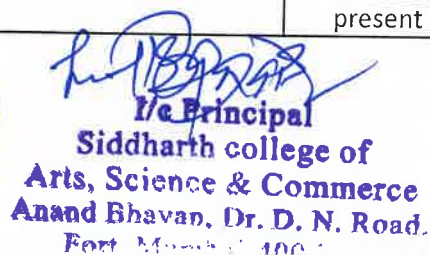 present
I/c Principal
Siddharth college of
Arts, Science & Commerce
Anand Bhavan, Dr. D. N. Road,
Fort